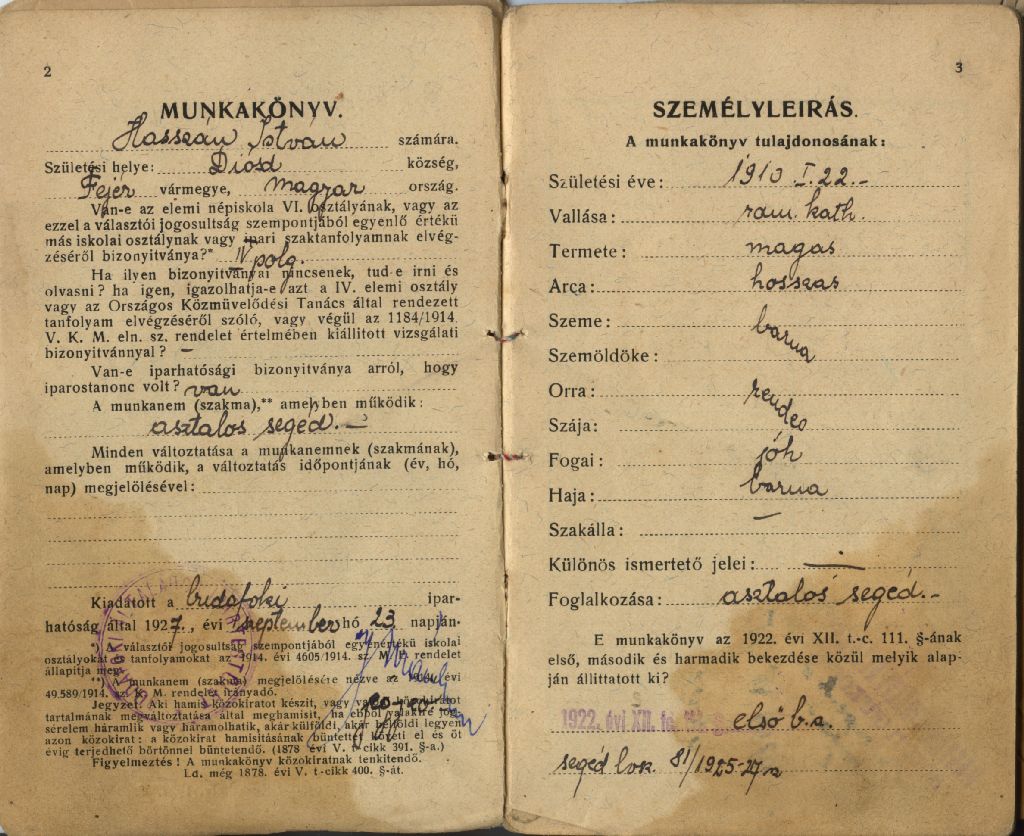 2
MUNKAKÖNYV.
Hasszán István számára.
Születési helye: Diósd község,
Fejér vármegye, magyar ország.
Van-e az elemi népiskola VI. osztályának, vagy az
ezzel a választói jogosultság szempontjából egyenlő értékü
más iskolai osztálynak vagy ipari szaktanfolyamnak elvég-
zéséről bizonyitványa?* IV polg.
Ha ilyen bizonyitványai nincsenek, tud-e irni és
olvasni? ha igen, igazolhatja-e azt a IV. elemi osztály
vagy az Országos Közmüvelődési Tanács által rendezett
tanfolyam elvégzéséről szóló, vagy végül az 1184/1914.
V. K. M. eln. sz. rendelet értelmében kiállitott vizsgálati
bizonyitvánnyal? —
Van-e iparhatósági bizonyitványa arról, hogy
iparostanonc volt? van
A munkanem (szakma),** amelyben működik:
asztalos segéd. —
Minden változtatása a munkanemnek (szakmának),
amelyben működik, a változtatás időpontjának (év, hó,
nap) megjelölésével:
Kiadatott a budafoki ipar-
hatóság által 1927., évi szeptember hó 23 napján-
*) A választói jogosultság szempontjából egyenértékü iskolai
osztályokat és tanfolyamokat az 1914. évi 4605/1914. sz. rendelet
állapitja meg.
**) A munkanem (szakma) megjelölésére nézve az évi
49.589/1914. sz. K. M. rendelet irányadó.
Jegyzet: Aki hamis közokiratot készit, vagy valódi közokiratot
tartalmának megváltoztatása által meghamisit, ha ebből valakire jog-
sérelem hárámlik vagy háramolhatik, akár külföldi, akár belföldi legyen
azon közokirat: a közokirat hamisitásának büntettét követi el és öt
évig terjedhető börtönnel büntetendő. (1878 évi V. t-cikk 391. §-a.)
Figyelmeztés! A munkakönyv közokiratnak tenkitendő.
Ld. még 1878. évi V. t-cikk 400. §-át.
3
SZEMÉLYLEIRÁS.
A munkakönyv tulajdonosának:
Születési éve: 1910 I. 22. -
Vallása: rom. kath.
Termete: magas
Arca: hosszas
Szeme: barna
Szemöldöke:
Orra: rendes
Szája:
Fogai: jók
Haja: barna
Szakálla: —
Különös ismertető jelei: —
Foglalkozása: asztalos segéd. -
E munkakönyv az 1922. évi XII. t.-c. 111. §-ának
első, második és harmadik bekezdése közül melyik alap-
ján állittatott ki?
1922. évi XII. tc. első b. a.
segéd lvk. 81/1925-27